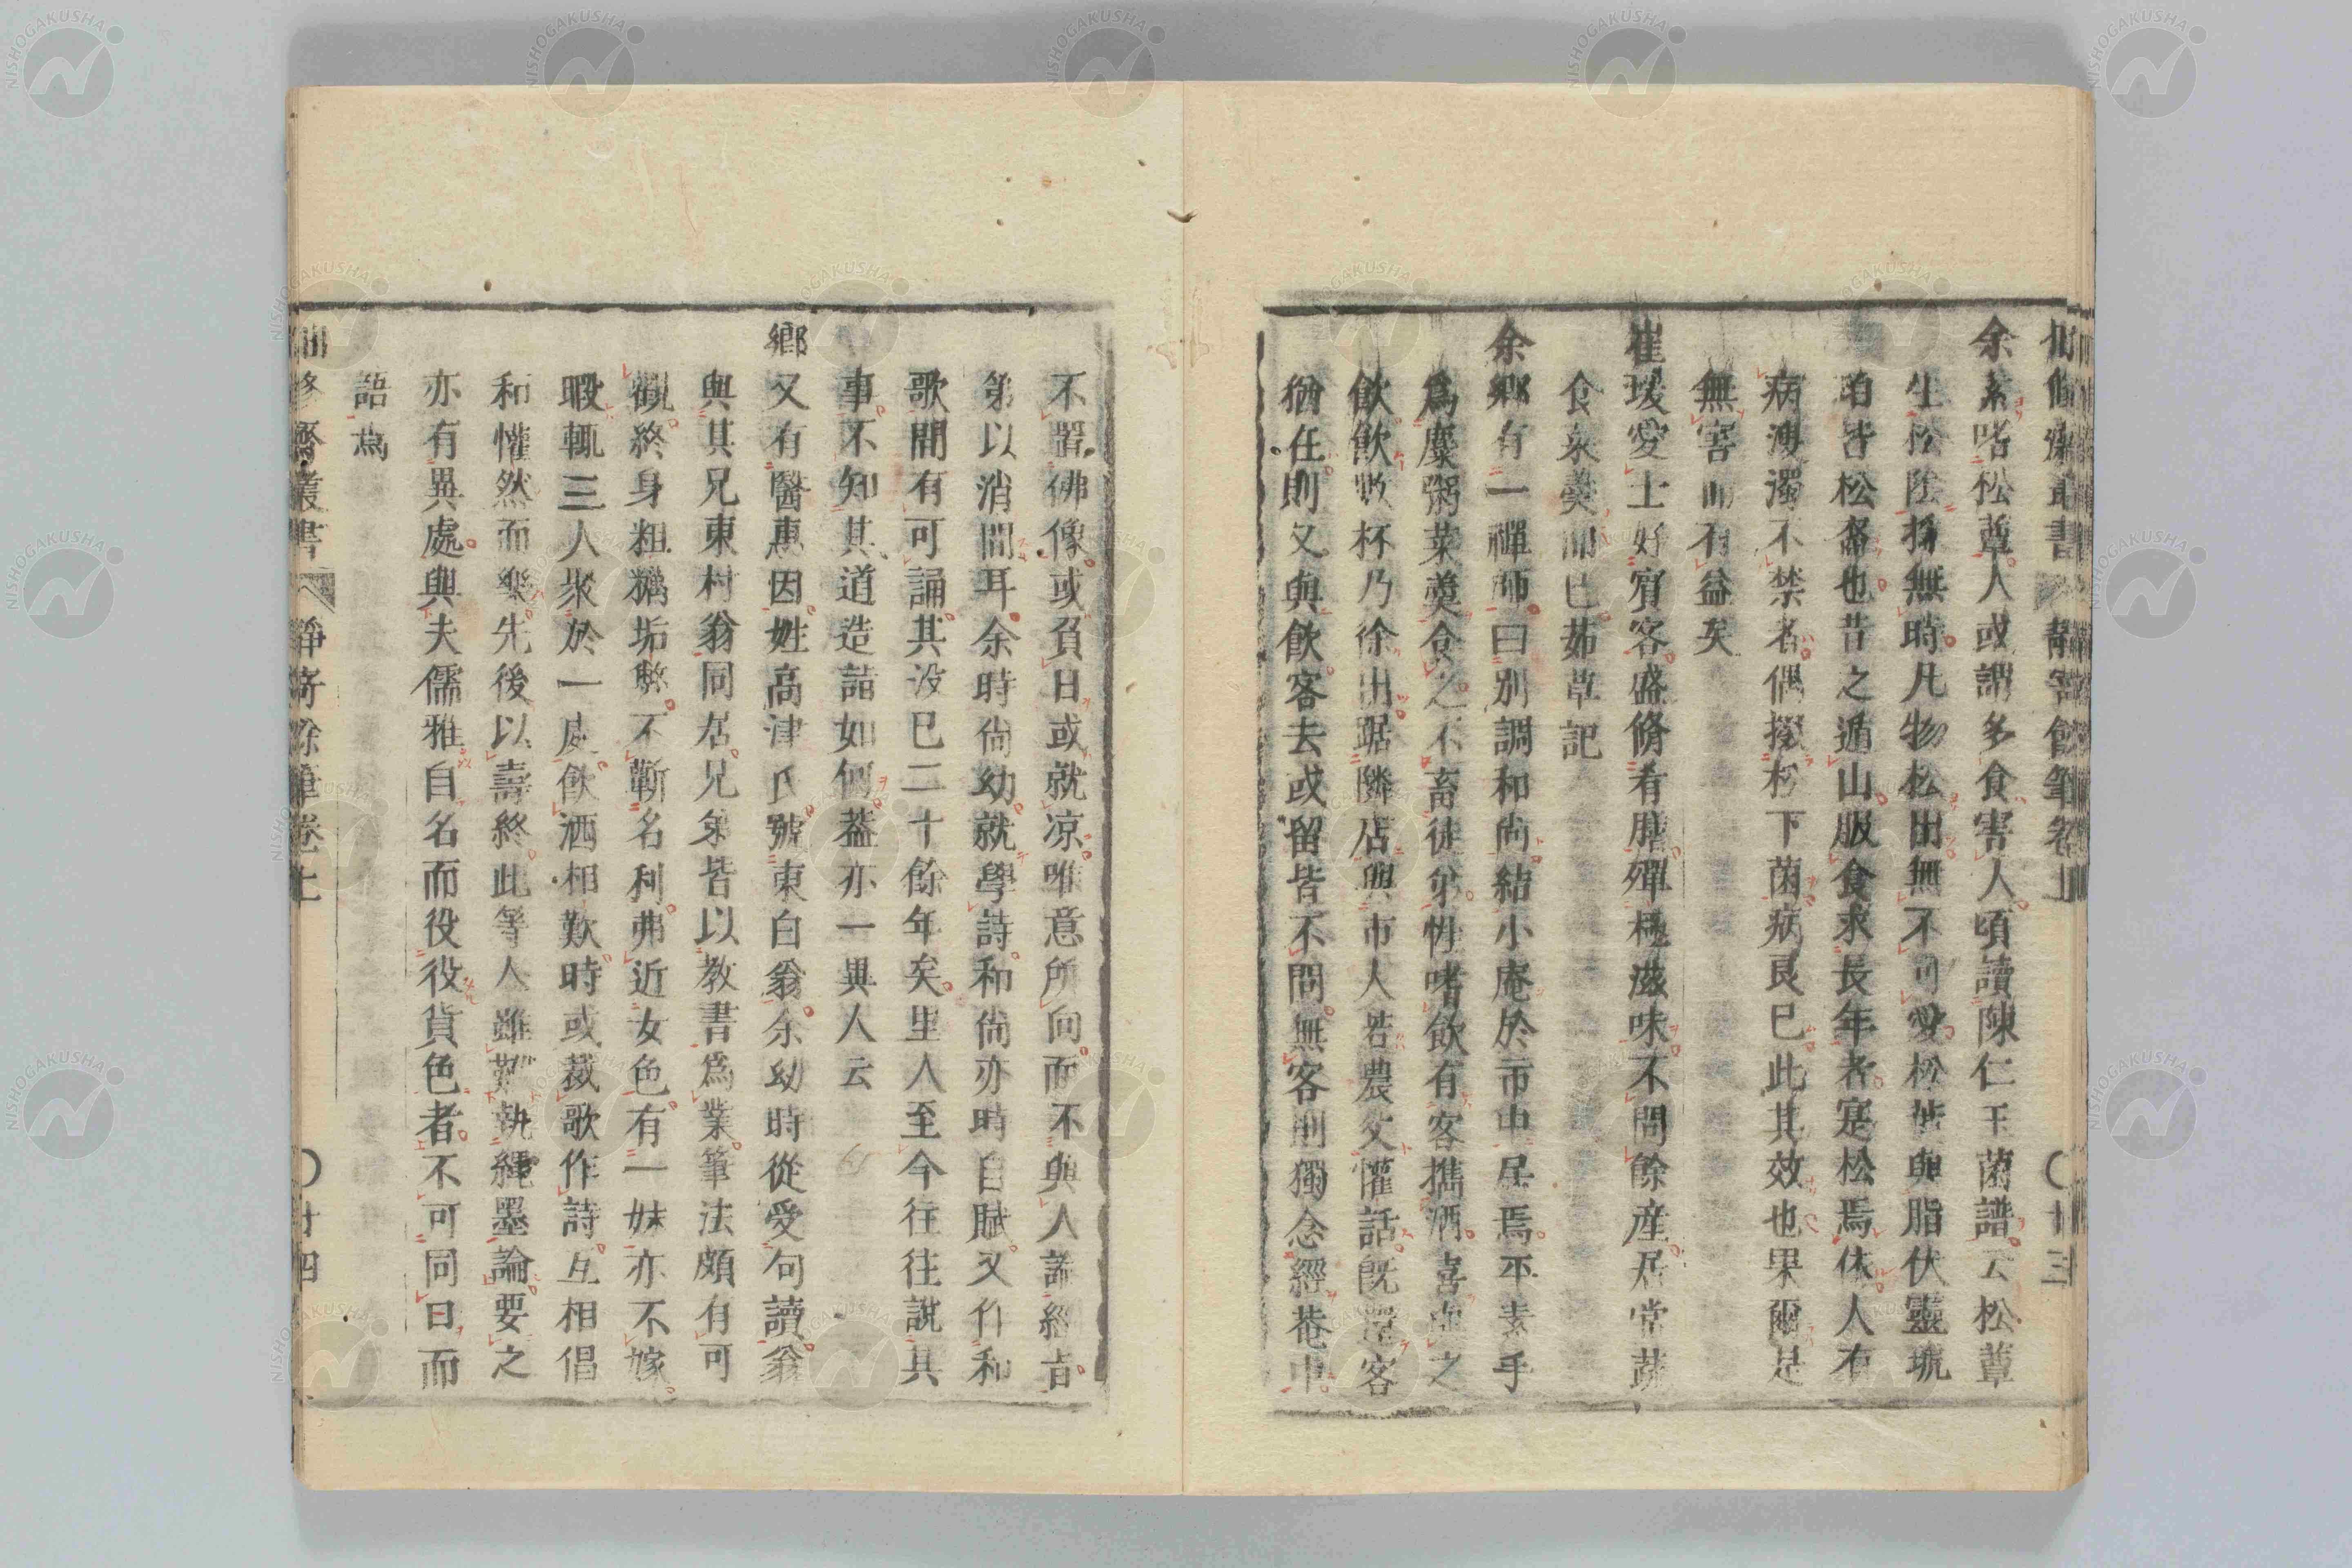 余素嗜松蕈人或謂多食害人頃讀陳仁玉菌譜云松蕈
生松陰採無時凡物松出無不可愛松葉與脂伏靈琥
珀皆松裔也昔之遁山服食求長年者寔松焉依人有
病溲濁不禁者偶掇松下菌病良已此其效也果爾是
無害而有益矣
崔瑗愛士好賓客盛脩肴膳殫極滋味不問餘産居常蔬
食菜羹而已茹草記
余鄉有一禪師曰別調和尚結小庵於市中居焉平素手
爲麋粥菜羹食之不畜徒弟性嗜飲有客攜酒喜迎之
飲飲收杯乃徐出踞隣店與市人若農父懽話既還客
猶在則又與飲客去或留皆不問無客則獨念經巷中
不器佛像或負日或就凉唯意所向而不與人論經旨
第以消間耳余時尚幼就學詩和尚亦時自賦又作和
歌間有可誦其没已二十餘年矣里人至今往往說其
事不知其道造詣如何蓋亦一異人云
鄉又有醫惠因姓高津氏號東白翁余幼時從受句讀翁
與其兄東村翁同居兄弟皆以教書爲業筆法頗有可
觀終身粗糲垢弊不蘄名利弗近女色有一妹亦不嫁
暇輒三人聚於一處飲酒相歡時或裁歌作詩互相倡
和懽然而樂先後以壽終此等人雖難執繩墨論要之
亦有異處與夫儒雅自名而役役貨色者不可同日而
語爲
靜寄餘筆卷上
〇廿四